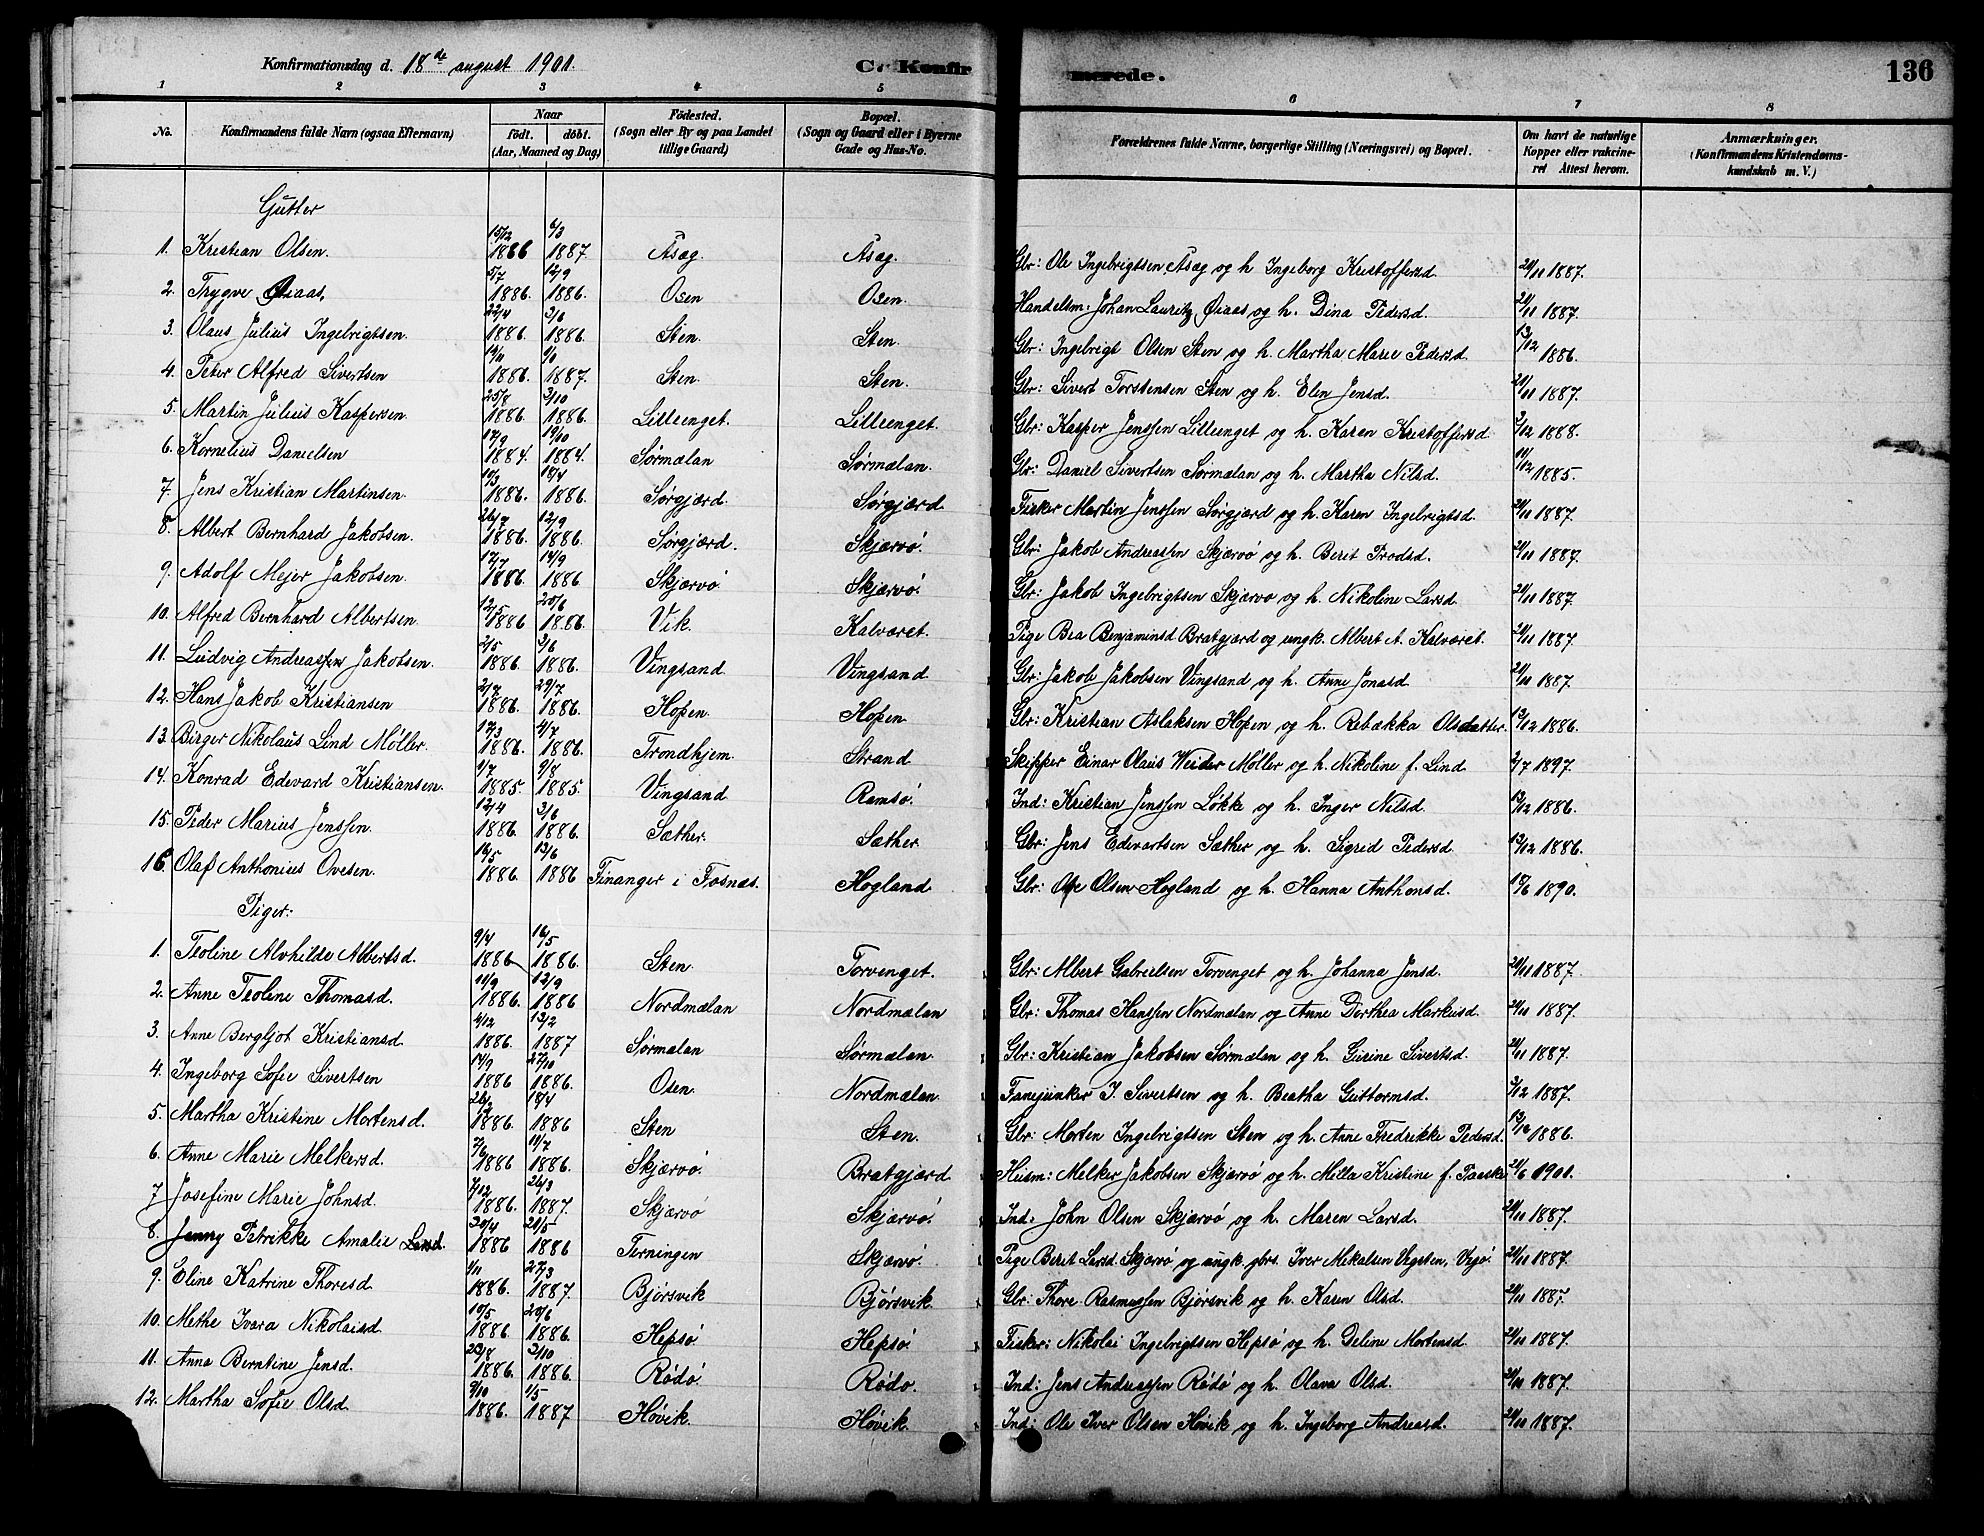 Konfirmationsdag d. 18de august 1901. C. Konfirmerede. 136
1 2 3 4 5 6 7 8
No. Konfirmandens fulde Navn (ogsaa Efternavn) Naar født. døbt. (Aar, Maaned og Dag) Fødested. (Sogn eller By og paa Landet tillige Gaard) Bopæl. (Sogn og Gaard eller i Byerne Gade og Hus-No. Forældrenes fulde Navne, borgerlige Stilling (Næringsvei) og Bopæl. Om havt de naturlige Kopper eller vakcineret Attest herom. Anmærkninger. (Konfirmandens Kristendomskundskab m. V.)
Gutter
1. Kristian Olsen. 15/12 1886 6/3 1887. Åsæg. Åsæg. Gbr: Ole Ingebrigtsen Åsæg og h. Ingeborg Kristoffersd. 24/11 1887.
2. Trygve Øiaas, 5/7 1886. 12/9 1886. Osen Osen. Handelsm: Johan Lauritz Øiaas og h. Dina Pedersd. 21/11 1887.
3. Olaus Julius Ingebrigtsen. 22/4 1886. 3/6 1886. Sten. Sten. Gbr: Ingebrigt Olsen Sten og h. Martha Marie Pedersd. 13/12 1886.
4. Peter Alfred Sivertsen 1886. 1887. Sten. Sten. Gbr: Sivert Torstensen Sten og h. Elen Jensd. 21/11 1887.
5. Martin Julius Kaspersen 25/8 1886. 3/10 1886. Lilleenget. Lilleenget. Gbr: Kasper Jenssen Lilleenget og h. Karen Kristoffersd. 3/12 1888.
6. Kornelius Danielsen 17/9 1884. 19/10 1884. Sørmælan Sørmælan. Gbr: Daniel Sivertsen Sørmælan og h. Martha Nilsd. 11/12 1885.
7. Jens Kristian Martinsen. 10/3 1886. 18/4 1886. Sørgjærd. Sørgjærd Fisker Martin Jenssen Sørgjærd og h. Karen Ingebrigtsd. 21/11 1887.
8. Albert Bernhard Jakobsen. 26/7 1886. 12/9 1886. Sørgjærd. Skjærvø. Gbr: Jakob Andreassen Skjærvø og h. Berit Frodsd. 21/11 1887.
9. Adolf Mejer Jakobsen. 17/7 1886. 14/9 1886 Skjærvø Skjærvø. Gbr: Jakob Ingebrigtsen Skjærvø og h. Nikoline Larsd. 21/11 1887.
10. Alfred Bernhard Albertsen. 12/5 1886 20/6 1886. Vik. Kalværet. Pige Bea Benjaminsd Bratgjærd og ungk. Albert A. Kalværet. 21/11 1887.
11. Ludvig Andreassen Jakobsen. 2/5 1886. 3/6 1886. Vingsand Vingsand Gbr: Jakob Jakobsen Vingsand og h. Anne Jonasd. 21/11 1887.
12. Hans Jakob Kristiansen 2/7 1886. 29/7 1886. Hopen. Hopen Gbr: Kristian Aslaksen Hopen og h. Rebækka Olsdatter. 13/12 1886.
13. Birger Nikolaus Lind Møller. 17/3 1886. 4/7 1886. Trondhjem. Strand Skipper Einar Olaus Weider Møller og h. Nikoline f. Lind. 2/7 1897.
14. Konrad Edevard Kristiansen. 9/7 1885. 9/8 1885. Vingsand Ramsø. Ind: Kristian Jenssen Løkke og h. Inger Nilsd. 13/12 1886.
15. Peder Marius Jenssen. 12/4 1886. 3/6 1886. Sæther. Sæther Gbr: Jens Edevartsen Sæther og h. Sigrid Pedersd. 13/12 1886.
16. Olaf Anthonius Ovesen. 16/5 1886. 13/6 1886 Finanger i Fosnæs. Hogland. Gbr: Ove Olsen Hogland og h. Hanna Anthonsd. 1890.
Piger:
1. Teoline Alvhilde Albertsd. 9/4 1886 16/5 1886. Sten. Torvenget. Gbr: Albert Gabrielsen Torvenget og h. Johanna Jensd. 21/11 1887.
2. Anne Teoline Thomasd. 11/9 1886. 12/9 1886 Nordmælan Nordmælan Gbr: Thomas Hanssen Nordmælan og Anne Dorthea Markusd. 21/11 1887.
3. Anne Bergljot Kristiansd. 4/12 1886. 13/2 1887 Sørmælan Sørmælan. Gbr: Kristian Jakobsen Sørmælan og h. Gurine Sivertsd. 21/11 1887.
4. Ingeborg Sofie Sivertsen 14/9 1886 27/10 1886. Osen Nordmælan. Fanejunker J. Sivertsen og h. Beatha Guttormsd. 3/12 1887.
5. Martha Kristine Mortensd. 26/2 1886. 18/4 1886 Sten Sten. Gbr: Morten Ingebrigtsen Sten og h. Anne Fredrikke Pedersd. 13/12 1886.
6. Anne Marie Melkersd. 7/6 1886 11/7 1886. Skjærvø. Bratgjærd. Husm: Melker Jakobsen Skjærvø og h. Milla Kristine f. Paaske 21/6 1901.
7 Josefine Marie Johnsd. 7/12 1886. 26/3 1887. Skjærvø Skjærvø. Ind: John Olsen Skjærvø og h. Maren Larsd. 21/11 1887.
8. Jenny Petrikke Amalie Larsd. 30/4 1886 21/5 1886 Terningen Skjærvø. Pige Berit Larsd. Skjærvø og ungk. gbrs. Iver Mikalsen 21/11 1887.
9. Eline Katrine Thoresd. 1/11 1886. 27/3 1887. Bjørsvik Bjørsvik. Gbr: Thore Rasmussen Bjørsvik og h. Karen Olsd. 21/11 1887.
10. Methe Ivara Nikolaisd. 10/5 1886. 20/6 1886. Hepsø Hepsø. Fisker: Nikolai Ingebrigtsen Hepsø og h. Deline Mortensd. 21/11 1887.
11. Anna Berntine Jensd. 23/8 1886. 3/10 1886. Rødø. Rødø. Ind: Jens Andreassen Rødø og h. Olava Olsd. 21/11 1887.
12. Martha Sofie Olsd. 9/10 1886. 1/5 1887 Høvik. Høvik. Ind: Ole Iver Olsen Høvik og h. Ingeborg Andreasd. 21/11 1887.